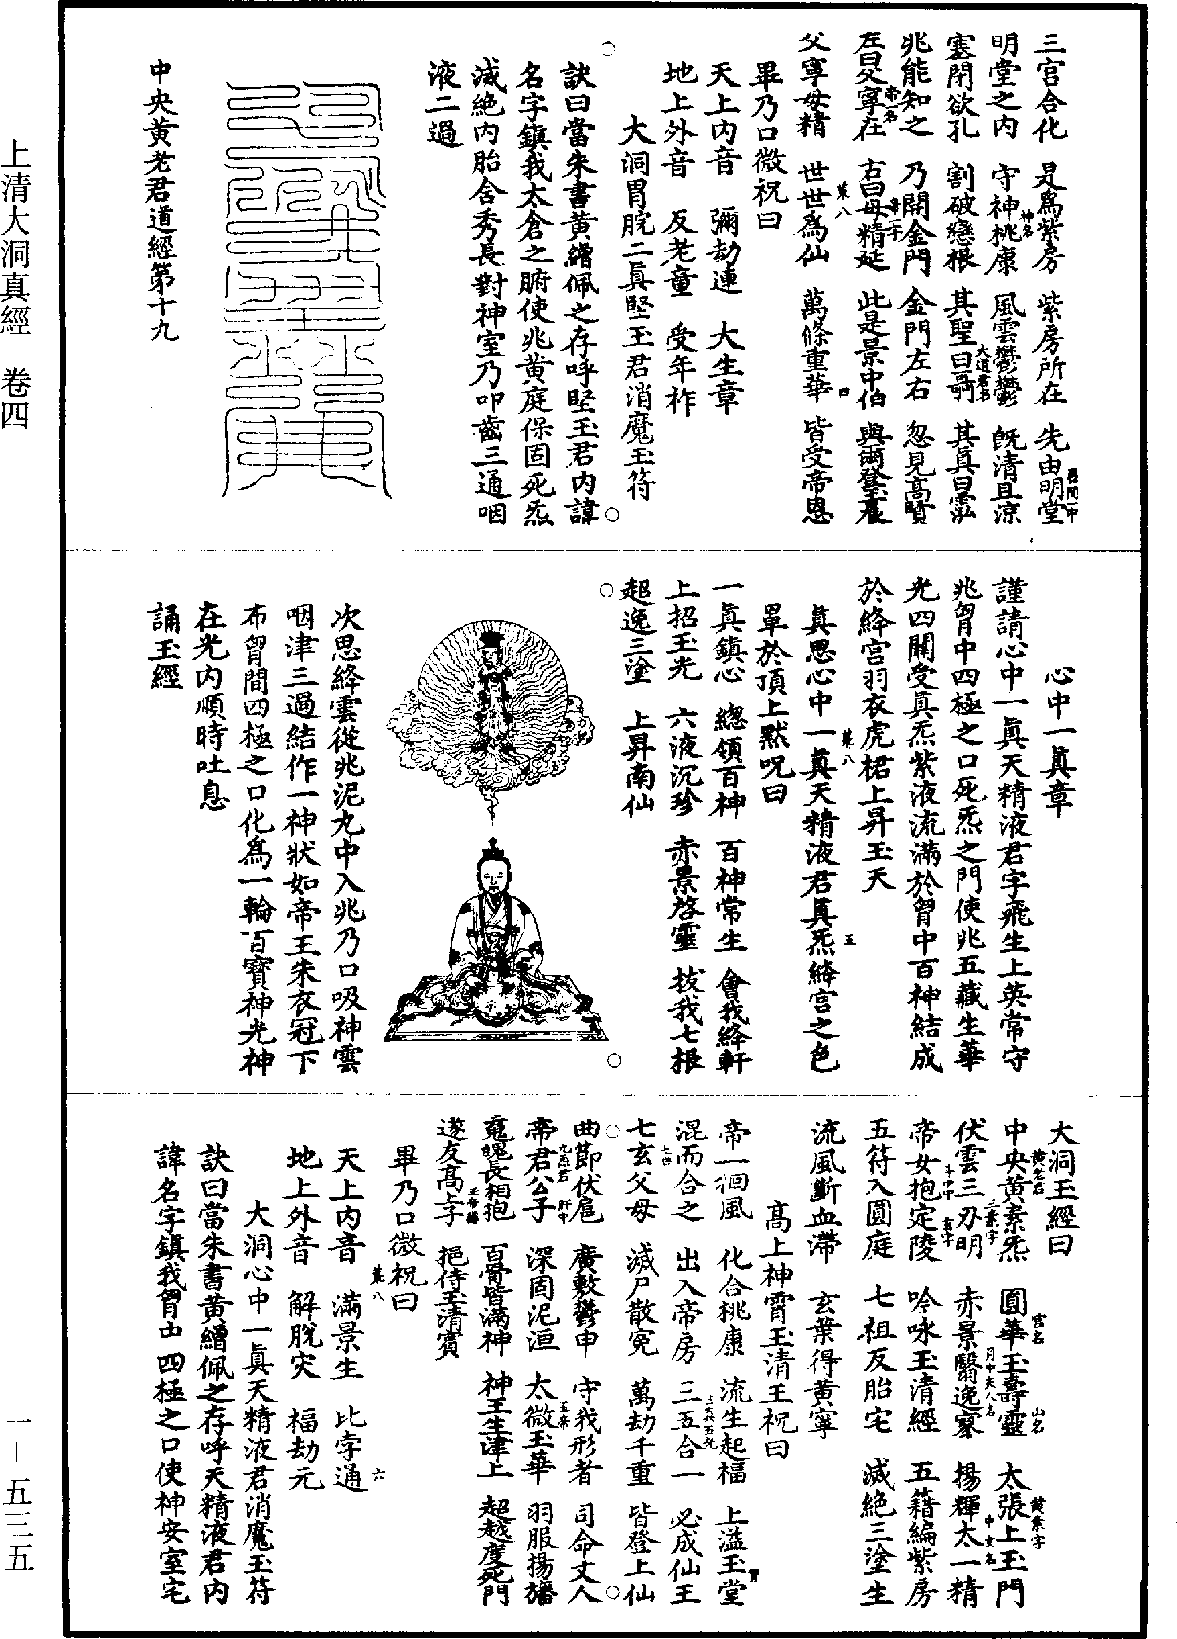 上清大洞真經　卷四
三宮合化　是爲紫房　紫房所在　先由明堂
明堂之內　守神桃康　風雲鬱鬱　旣清且涼
塞閉欲孔　割破戀根　其聖曰哥　其眞曰靈
兆能知之　乃開金門　金門左右　忽見高賢
左曰父寧在　右曰母精延　此是景中伯　與爾登玉晨
父寧母精　世世爲仙　萬條重華　皆受帝恩
畢乃口微祝曰
天上內音　彌劫連　大生章
地上外音　反老童　受年祚
大洞胃脘二眞堅玉君消魔玉符
訣曰當朱書黃繒佩之存呼堅玉君內諱
名字鎮我太倉之腑使兆黃庭保固死炁
滅絕內胎含秀長對神室乃叩齒三通咽
液二過
中央黃老君道經第十九
心中一眞章
謹請心中一眞天精液君字飛生上英常守
兆胷中四極之口死炁之門使兆五藏生華
光四關受真炁紫液流滿於胷中百神結成
於絳宮羽衣虎裙上昇玉天
眞思心中一眞天精液君眞炁絳宮之色
畢於頂上默咒曰
一眞鎮心　總領百神　百神常生　會我絳軒
上招玉光　六液沉珍　赤景啓靈　拔我七根
超逸三塗　上昇南仙
次思絳雲從兆泥丸中入兆乃口吸神雲
咽津三過結作一神狀如帝王朱衣冠下
布胷間四極之口化爲一輪百寶神光神
在光內順時吐息
誦玉經
大洞玉經曰
中央黃素炁　圓華玉壽靈　太張上玉門
伏雲三刃明　赤景翳逸寥　揚輝太一精
帝女抱定陵　吟咏玉清經　五籍編紫房
五符入圓庭　七祖反胎宅　滅絕三塗生
流風斷血滯　玄葉得黃寧
高上神霄玉清王祝曰
帝一徊風　化合桃康　流生起福　上溢玉堂
混而合之　出入帝房　三五合一　必成仙王
七玄父母　滅尸散寃　萬劫千重　皆登上仙
曲節伏扈　廣敷鬱申　守我形者　司命丈人
帝君公子　深固泥洹　太微玉華　羽服揚旛
䰟魄長相抱　百骨皆滿神　神王生津上　超越度死門
遂友高上字　挹侍玉清賓
畢乃口微祝曰
天上內音　滿景生　比字通
地上外音　解脫灾　福劫元
大洞心中一眞天精液君消魔玉符
訣曰當朱書黃繒佩之存呼天精液君內
諱名字鎮我胷中四極之口使神安室宅
一—五三五